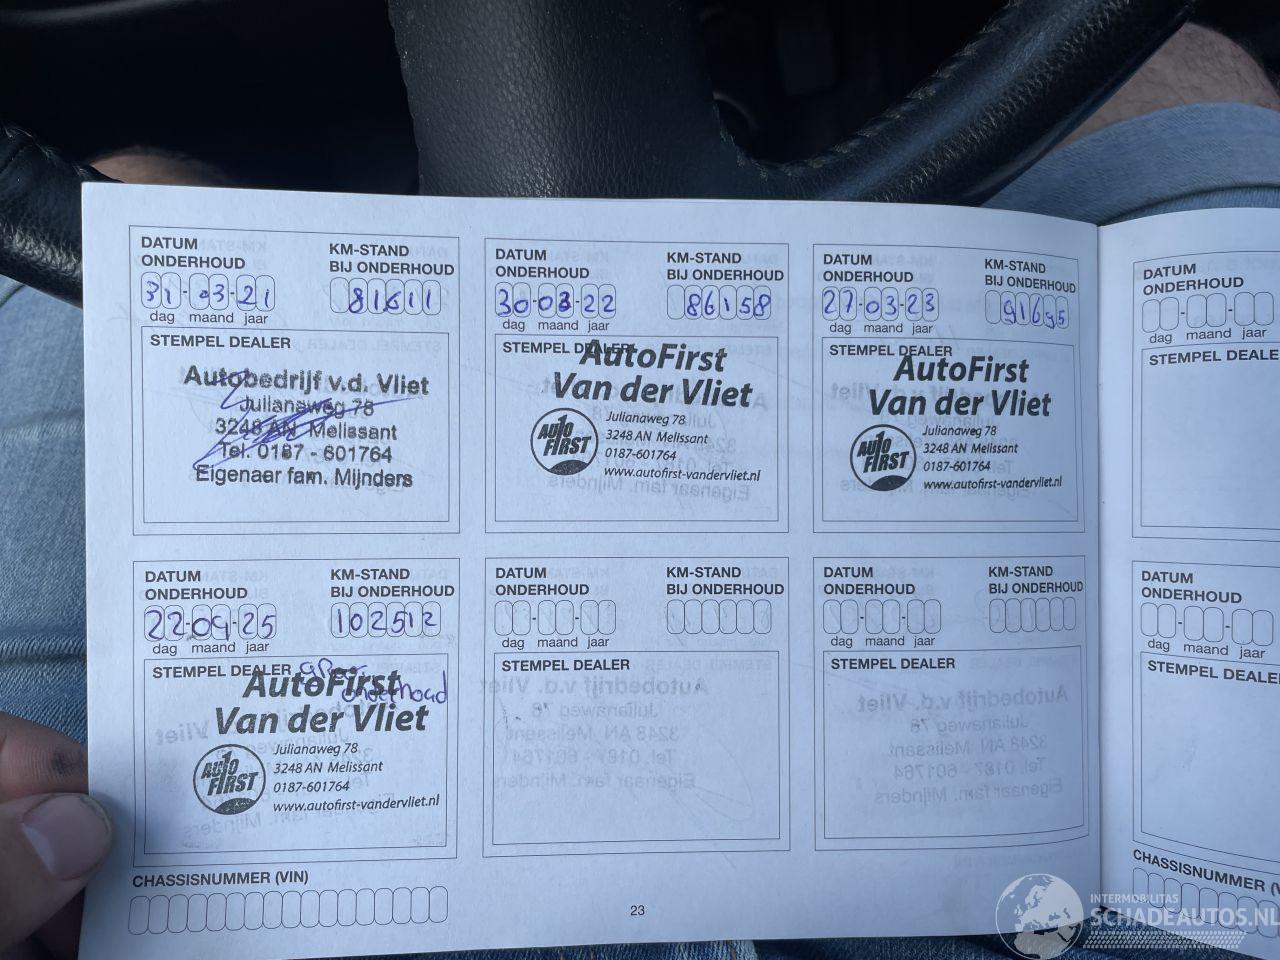 DATUM
ONDERHOUD
KM-STAND
BIJ ONDERHOUD
31-03-21
81611
dag maand jaar
STEMPEL DEALER
Autobedrijf v.d. Vliet
Julianaweg 78
3248 AN Melissant
Tel. 0187 - 601764
Eigenaar fam. Mijnders
DATUM
ONDERHOUD
KM-STAND
BIJ ONDERHOUD
30-03-22
86158
dag maand jaar
STEMPEL DEALER
AutoFirst
Van der Vliet
AUTO
FIRST
Julianaweg 78
3248 AN Melissant
0187-601764
www.autofirst-vandervliet.nl
DATUM
ONDERHOUD
KM-STAND
BIJ ONDERHOUD
27-03-23
91695
dag maand jaar
STEMPEL DEALER
AutoFirst
Van der Vliet
AUTO
FIRST
Julianaweg 78
3248 AN Melissant
0187-601764
www.autofirst-vandervliet.nl
DATUM
ONDERHOUD
dag maand jaar
STEMPEL DEALE
DATUM
ONDERHOUD
KM-STAND
BIJ ONDERHOUD
22-09-25
102512
dag maand jaar
STEMPEL DEALER
onderhoud
AutoFirst
Van der Vliet
AUTO
FIRST
Julianaweg 78
3248 AN Melissant
0187-601764
www.autofirst-vandervliet.nl
DATUM
ONDERHOUD
KM-STAND
BIJ ONDERHOUD
dag maand jaar
STEMPEL DEALER
DATUM
ONDERHOUD
KM-STAND
BIJ ONDERHOUD
dag maand jaar
STEMPEL DEALER
DATUM
ONDERHOUD
dag maand jaar
STEMPEL DEALE
CHASSISNUMMER (VIN)
23
CHASSISNUMMER (VIN)
INTERMOBILITAS
SCHADEAUTOS.NL